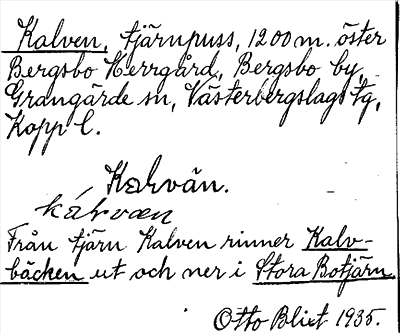 Kalven, tjärnpuss, 1200 m. öster
Bergsbo Herrgård, Bergsbo by,
Grangärde sn, Västerbergslags tg,
Kopp l.
Kalvän.
kálvæn
Från tjärn Kalven rinner Kalv-
bäcken ut och ner i Stora Botjärn
Otto Blixt 1935.